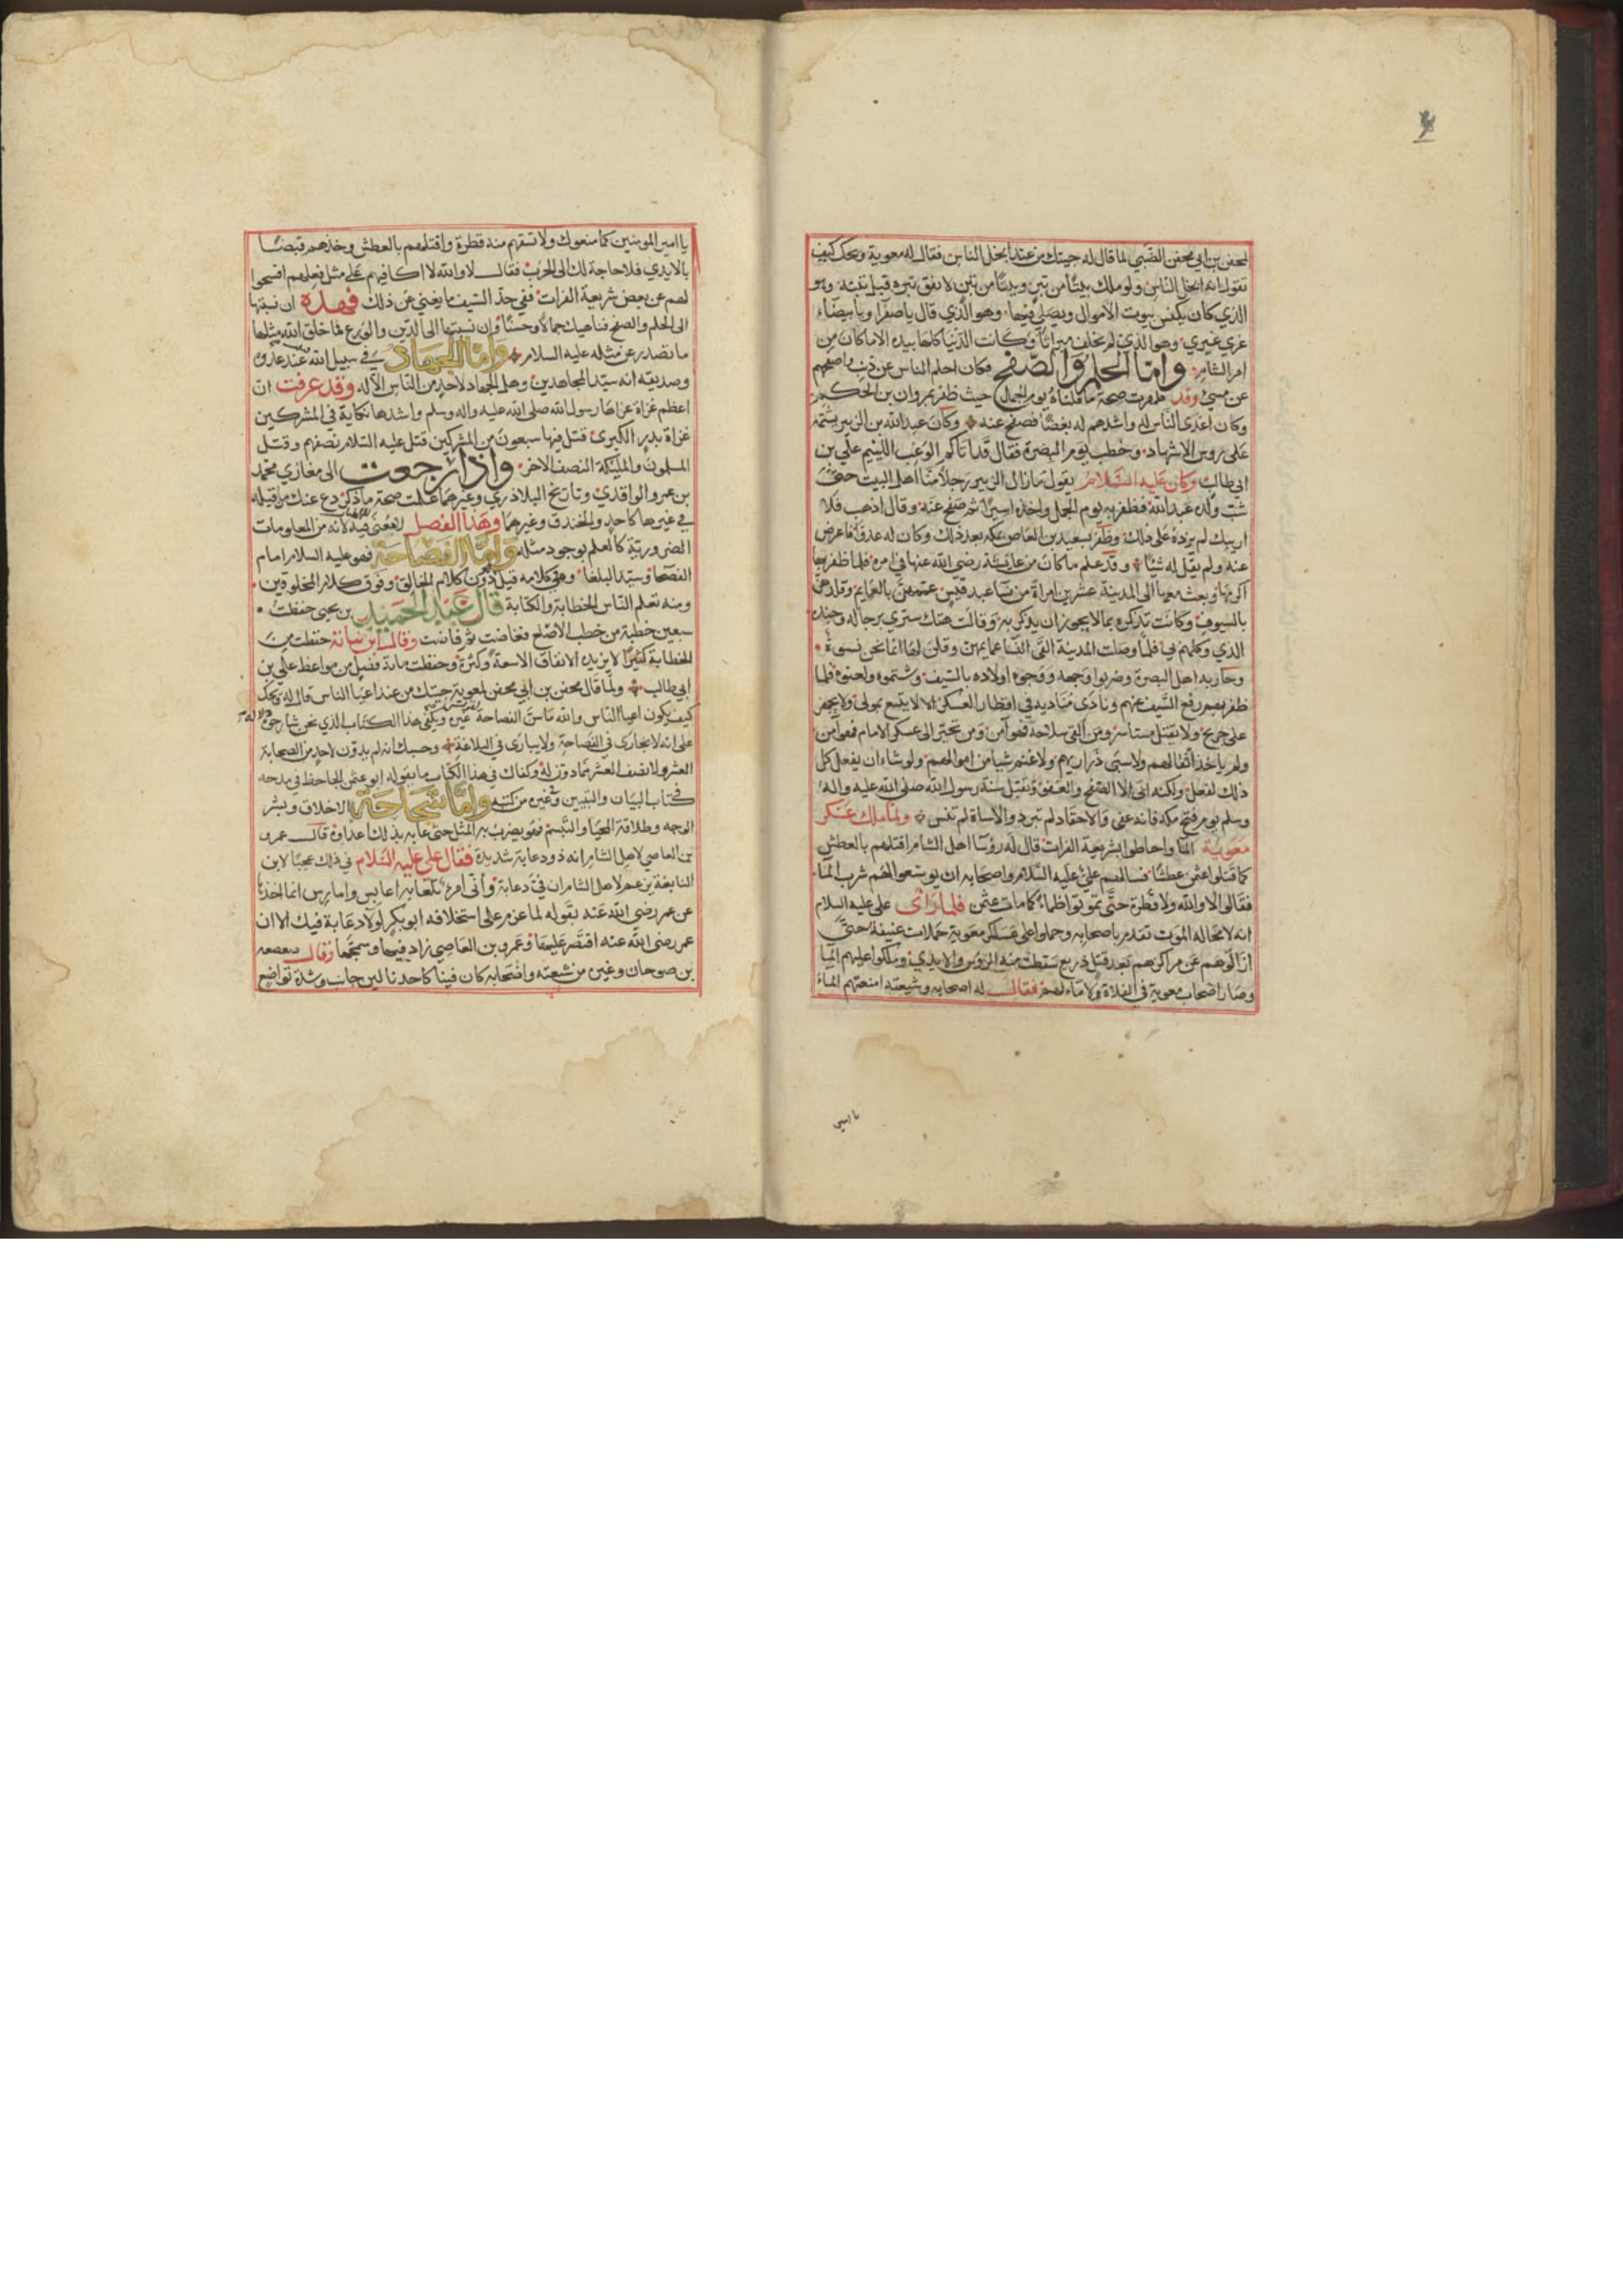 لمحفن بن ابي محفن الضبي لما قال له جيتك من عند ابخل الناس فقال له معوية ويحك كيف
تقول انه ابخل الناس ولو ملك بيتا من تبر وبيتا من تبن لانفق تبره قبل تبنه وهو
الذي كان يكنس بيوت الاموال ويصلي فيها وهو الذي قال يا صفرا ويا بيضاء
غري غيري وهو الذي لم يخلف ميراثا وكانت الدنيا كلها بيده الا ماكان من
امر الشام واما الحلم والصفح فكان احلم الناس عن ذنب واصفحهم
عن مسيئ وقد ظهرت صحة ما قلناه يوم الجمل حيث ظفر بمروان بن الحكم
وكان اعدى الناس له واشدهم له بغضا فصفح عنه وكان عبد الله بن الزبير يشتمه
على روس الاشهاد وخطب يوم البصرة فقال قد اتاكم الوغب اللئيم علي بن
ابي طالب وكان عليه السلام يقول مازال الزبير رجلا منا اهل البيت حتى
شب ولده عبد الله فظفر به يوم الجمل واخذه اسيرا ثم صفح عنه وقال اذهب فلا
ارينك لم يزده على ذلك وظفر بسعيد بن العاص بمكه بعد ذلك وكان له عدوا فاعرض
عنه ولم يقل له شيئا وقد علم ما كان من عايشة رضى الله عنها في امره فلما ظفر بها
اكرمها وبعث معها الى المدينة عشرين امراة من نسا عبد قيس عممهن بالعمايم وقلدهن
بالسيوف وكانت تذكره بما لا يجوز ان يذكر به وقالت هتك ستري برجاله وجنده
الذي وكلهم بي فلما وصلت المدينة القى النسا عمايمهن وقلن لها انما نحن نسوة
وحاربه اهل البصرة وضربوا وجهه ووجوه اولاده بالسيف وشتموه ولعنوه فلما
ظفر بهم رفع السيف عنهم ونادى مناديه في اقطار العسكر الا لا يتبع مولي ولا يجهز
على جريح ولا يقتل مستاسر ومن القى سلاحه فهو آمن ومن تحيز الى عسكر الامام فهو آمن
ولم ياخذ اثقالهم ولا سبى ذراريهم ولا غنم شيا من اموالهم ولو شاء ان يفعل كل
ذلك لفعل ولكنه ابى الا الصفح والعفو وتقبل سنة رسول الله صلى الله عليه واله
وسلم يوم فتح مكه فانه عفى والاحقاد لم تبرد والاساة لم تنس ولما ملك عسكر
معوية الما واحاطوا بشريعة الفرات قال له رؤسا اهل الشام اقتلهم بالعطش
كما قتلوا عثمن عطشا فسالهم علي عليه السلام واصحابه ان يوسعوا لهم شرب الما
فقالوا لا والله ولا قطرة حتى تموتوا ظماء كما مات عثمن فلما راى على عليه السلام
انه لا محاله الموت تقدم باصحابه وحملوا على عسكر معوية حملات عنيفة حتى
ازالوهم عن مراكزهم بعد قتل ذريع سقطت منه الروس والايدي وملكوا عليهم الما
وصار اصحاب معوية في الفلاة ولا ماء لهم فقال له اصحابه وشيعته امنعهم الماء
يا امير
يا امير المومنين كما منعوك ولا تسقهم منه قطرة واقتلهم بالعطش وخذهم قبضا
بالايدي فلا حاجة لك الى الحرب فقال لا والله لا اكافيهم على مثل فعلهم افسحوا
لهم عن بعض شريعة الفرات ففي حد السيف ما يغني عن ذلك فهذه ان نسبتها
الى الحلم والصفح فناهيك جمالا وحسنا وان نسبتها الى الدين والورع لما خلق الله مثلها
ما تصدر عن مثله عليه السلام واما الجهاد في سبيل الله فعند عدوه
وصديقه انه سيد المجاهدين وهل الجهاد لاحد من الناس الا له وقد عرفت ان
اعظم غزاة غزاها رسول الله صلى الله عليه واله وسلم واشدها نكاية في المشركين
غزاة بدر الكبرى قتل فيها سبعون من المشركين قتل عليه السلام نصفهم وقتل
المسلمون والمليكة النصف الاخر واذا رجعت الى مغازي محمد
بن عمر والواقدي وتاريخ البلاذري وغيرهما علمت صحة ما ذكر دع عنك من قتله
في غيرها كاحد والخندق وغيرهما وهذا الفصل لا معنى فيه لانه من المعلومات
الضرورية كالعلم بوجود مثله واما الفصاحة فهو عليه السلام امام
الفصحا وسيد البلغا وعن كلامه قيل دون كلام الخالق وفوق كلام المخلوقين
ومنه تعلم الناس الخطابة والكتابة قال عبد الحميد بن يحيى حفظت
سبعين خطبة من خطب الاصلع ففاضت ثم فاضت وقال ابن نباتة حفظت من
الخطابة كنزا لا يزيده الانفاق الا سعة وكثرة وحفظت ماية فصل من مواعظ علي بن
ابي طالب ولما قال محفن بن ابي محفن لمعوية جيتك من عند اعيا الناس قال له ويحك
كيف يكون اعيا الناس والله ما سن الفصاحة غيره ويكفي هذا الكتاب الذي نحن شارحوه
على انه لا يجارى في الفصاحة ولا يبارى في البلاغة وحسبك انه لم يدون لاحد من الصحابة
العشر ولا نصف العشر مما دون له وكفاك في هذا الكتاب ما يقوله ابو عثمن الجاحظ في مدحه
في كتاب البيان والتبيين وغيره من كتبه واما سجاحة الاخلاق وبشر
الوجه وطلاقة المحيا والتبسم فهو يضرب به المثل حتى عابه بذلك اعداوه قال عمرو
بن العاصي لاهل الشام انه ذو دعابة شديدة فقال علي عليه السلام في ذلك عجبا لابن
النابغة يزعم لاهل الشام ان في دعابة واني امرء تلعابه اعابس وامارس انما اخذها
عن عمر رضي الله عنه بقوله لما عزم على استخلافه ابو بكر لولا دعابة فيك الا ان
عمر رضى الله عنه اقتصر عليها وعمرو بن العاصي زاد فيها وسمجها وقال صعصعه
بن صوحان وغيره من شيعته واصحابه كان فينا كاحدنا لين جانب وشدة تواضع